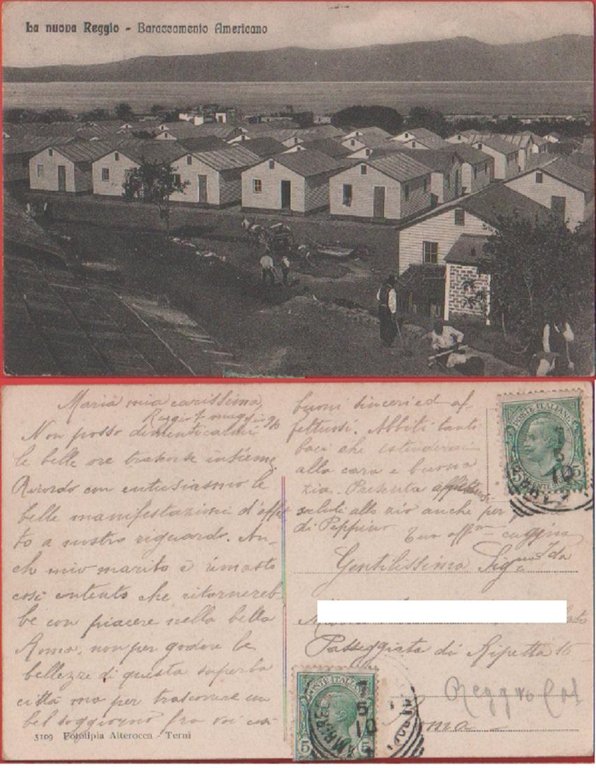 La nuova Reggio - Baraccamento Americano
Maria mia carissima,
Reggio 7 maggio 910
Non posso dimenticarmi
le belle ore trascorse insieme
Ricordo con entusiasmo le
belle manifestazioni d'affet
to a nostro riguardo. An-
ch mio marito è rimasto
così contento che ritornereb
be con piacere nella bella
Roma, non per godere le
bellezze di questa superba
città ma per trascorrere un
bel soggiorno fra voi
buoni sinceri ed af-
fettuosi. Abbiti tanti
baci che estenderai
alla cara e buona
zia. Presenta affettuosi
saluti allo zio anche per
di Peppino
Tua aff.ma cugina
Gentilissima Sig.na
Passeggiata di Ripetta 16
Reggio Cal
Roma
POSTE ITALIANE
5
POSTE ITALIANE
5
5
10
5109 Fototipia Alterocca - Terni